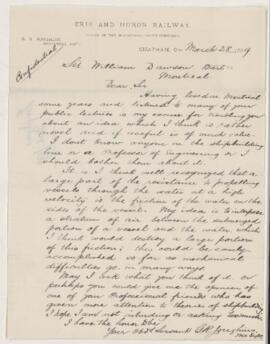 ERIE AND HURON RAILWAY.
CHATHAM, Ont. March 28, 1889
Confidential
Sir William Dawson Bart
Montreal
Dear Sir
Having lived in Montreal
some years and listened to many of your
public lectures is my excuse for troubling you
about an idea which I think is rather
novel and if useful is of much value.
I don't know anyone in the shipbuilding
line or a Professor of Engineering or I
should bother them about it.
It is I think well recognized that a
large part of the resistance to propelling
vessels through the water at a high
velocity is the friction of the water on the
sides of the vessel. My idea is to interpose
a stratum of air between the submerged
portion of a vessel and the water, which
I think would destroy a large portion
of this friction; this could be easily
accomplished so far as mechanical
difficulties go in many ways
May I ask what you think of it or
perhaps you could give me the opinion of
one of your Professional friends who has
given more attention to theories of shipbuilding
I hope I am not intruding or asking too much
I have the honor to be
Your obdt Servant